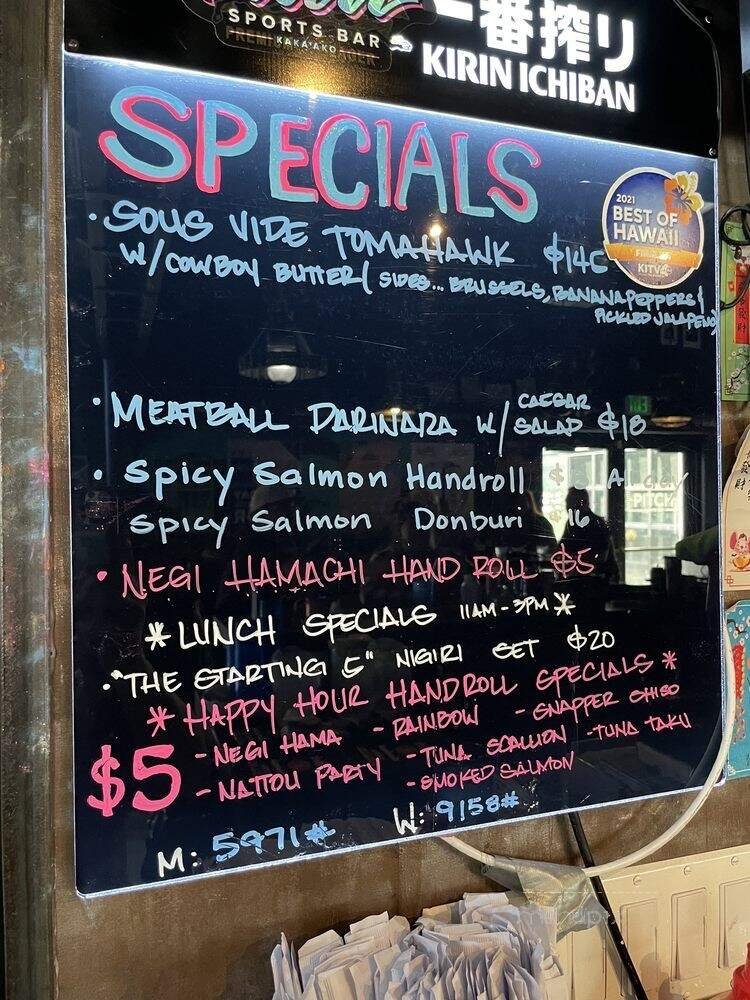 SPORTS BAR
KAKA'AKO
一番搾り
KIRIN ICHIBAN
SPECIALS
2021
BEST OF
HAWAII
KITV4
• SOUS VIDE TOMAHAWK
W/COWBOY BUTTER ( SIDES... BRUSSELS, BANANA PEPPERS
PICKLED JALAPENO
• MEATBALL DARINARA W/ CAESAR SALAD $18
• Spicy Salmon Handroll
Spicy Salmon Donburi $16
• NEGI HAMACHI HAND ROLL $5
* LUNCH SPECIALS 11AM-3PM *
• "THE STARTING 5" NIGIRI SET $20
* HAPPY HOUR HANDROLL SPECIALS *
$5
- NEGI HAMA - RAINBOW - SNAPPER SHISO
- NATTOU PARTY - TUNA SCALLION - TUNA TAKU
- SMOKED SALMON
M: 5971# W: 9158#